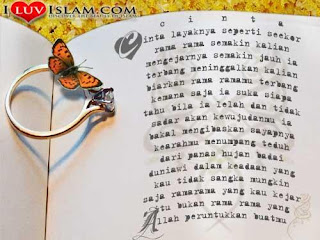 I LUVISLAM.COM
DISCOVER THE BEAUTY OF ISLAM
c i n t a
Cinta layaknya seperti seekor
rama rama semakin kalian
mengejarnya semakin jauh ia
terbang meninggalkan kalian
biarkan rama ramamu terbang
kemana saja ia suka siapa
tahu bila ia lelah dan tidak
sadar akan kewujudanmu ia
bakal mengibaskan sayapnya
kearahmu menumpang teduh
dari panas hujan badai
duniawi dalam keadaan yang
kau tidak sangka mungkin
saja ramarama yang kau kejar
itu bukan rama rama yang
Allah peruntukkan buatmu